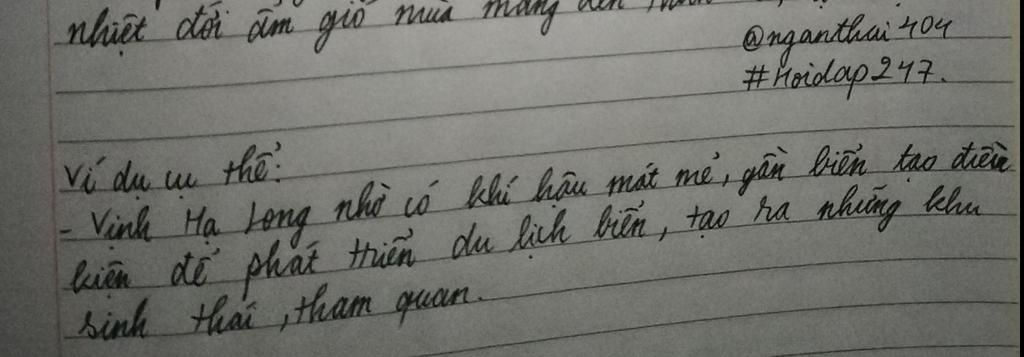 nhiệt đới ẩm gió mùa mang đến
@nganthai404
#Hoidap247.
Ví dụ cụ thể:
- Vịnh Hạ Long nhờ có khí hậu mát mẻ, gần biển tạo điều
kiện để phát triển du lịch biển, tạo ra những khu
sinh thái, tham quan.